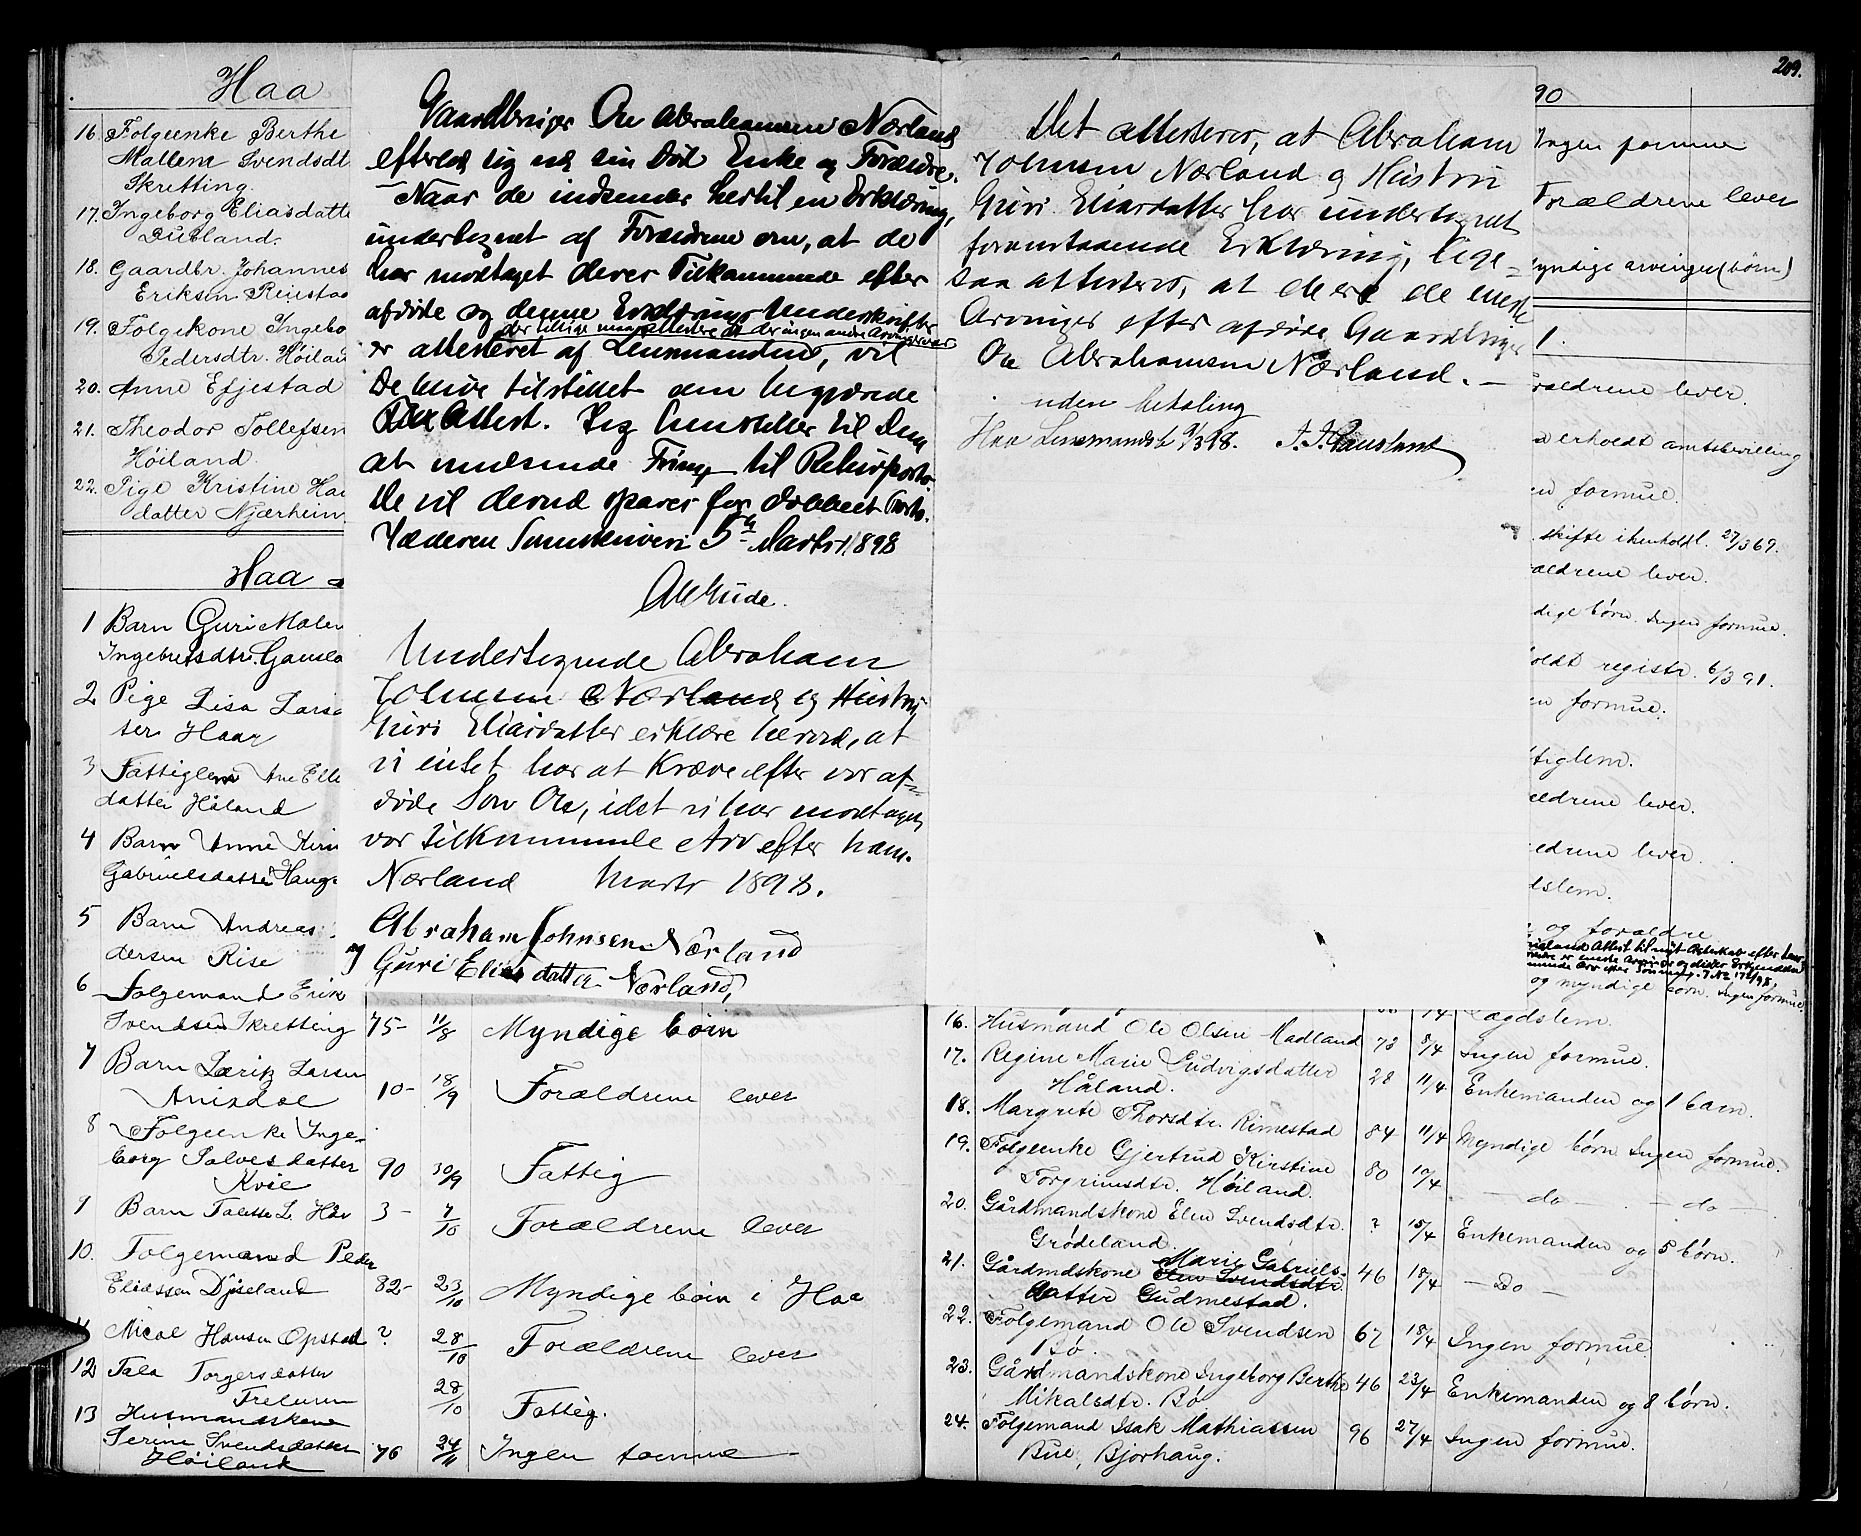 209.
Haa
16. Følgeenke Berthe
Mallene Svendsdt
Skretting.
17. Ingeborg Eliasdatte
Dusland.
18. Gaardbr. Johannes
Eriksen Reiestad
19. Følgekone Ingebo
Pedersdtr. Høilan
20. Anne Effestad
21. Theodor Tollefsen
Høiland
22. Pige Kristine Han
datter Njærheim
Haa
1 Barn Guri Malen
Ingebretsdtr. Gausla
2 Pige Lisa Larsd
ter Haar
3 Fattiglem Ane Elle
datter Håland
4 Barn Anne
Gabrielsdatter Hauge
5 Barn Andreas
dersen Rise
6 Følgemand Erik
Svendsen Skretting 75- 11/8 Myndige børn
7 Barn Lærik Larsen
Anisdal 10- 18/9 Forældrene lever
8 Følgeenke Inge-
borg Salvesdatter
Kvie 90 30/9 Fattig
9 Barn Talette L. Hår 3- 7/10 Forældrene lever
10. Følgemand Peder
Eliassen Dysland 82- 23/10 Myndige børn i Haa
Nicol Hansen Opstad ? 28/10 Forældrene lever
12 Tala Torgersdatter
28/10 Fattig.
13 Husmandskone
Serine Svendsdatter
Høiland 76 24/11 Ingen formue
Gaardbruger Ole Abrahamsen Nærland
efterlod sig ved sin Død Enke og Forældre.
- Naar de indsender hertil en Erklæring,
undertegnet af Forældrene om, at de
har modtaget deres Tilkommende efter
afdøde og denne Erklærings Underskrifter
der tillige maa attestere at der ingen andre Arvinger var
er attesteret af Lensmanden, vil
De blive tilstillet den begjærede
Attest. Jeg henstiller til Dem
at medsende Frim. til Returporto.
De vil derved spares for dobbelt Porto.
Jæderens Sorenskriveri 5te Marts 1898
Undertegnede Abraham
Johnsen Nærland og Hustru
Guri Eliasdatter erklære herved, at
vi intet har at kræve efter vor af-
døde Søn Ole, idet vi har modtaget
vor tilkommende Arv efter ham.
Nærland Marts 1898.
Abraham Johnsen Nærland
Guri Eliasdatter Nærland,
Det attesteres, at Abraham
Johnsen Nærland og Hustru
Guri Eliasdatter har undertegnet
foranstaaende Erklæring, lige-
saa attesteres, at de er de eneste
Arvinger efter afdøde Gaardbruger
Ole Abrahamsen Nærland. -
uden betaling
Haa Lensmandsb. 9/3 98.
90
Ingen formue
Forældrene lever
yndige arvinger (børn)
1.
rældrene lever.
erholdt amtsbevilling
en formue.
skifte i henhold t. 27/3 69.
ældrene lever.
dige børn. Ingen formue.
holdt registr. 6/3 91.
en formue.
tiglem.
ældrene lever.
ældrene lever.
dslem.
og forældre
og myndige børn. Ingen formue.
16. Husmand Ole Olsen Madland 73 8/4 Ingen formue.
Lægdslem.
17. Regine Marie Ludvigsdatter
Håland. 28 11/4 Enkemanden og 1 barn.
18. Margrete Thorsdtr. Rimestad 84 11/4 Myndige børn Ingen formue.
19. Følgeenke Gjertrud Kirstine
Torgrimsdtr. Høiland. 80 10/4 - do - - do -
20. Gårdmandskone Elen Svendsdtr.
Grødeland. ? 15/4 Enkemanden og 5 børn.
21. Gårdmdskone Elen Svendsdtr. Marie Gabriels-
datter Gudmestad. 46 18/4 - Do -
22. Følgemand Ole Svendsen
Bø. 67 18/4 Ingen formue
23. Gårdmandskone Ingeborg Berthe
Mikalsdtr. Bø. 46 23/4 Enkemanden og 8 børn.
24. Følgemand Isak Mathiassen
Bue, Bjorhaug. 96 27/4 Ingen formue.